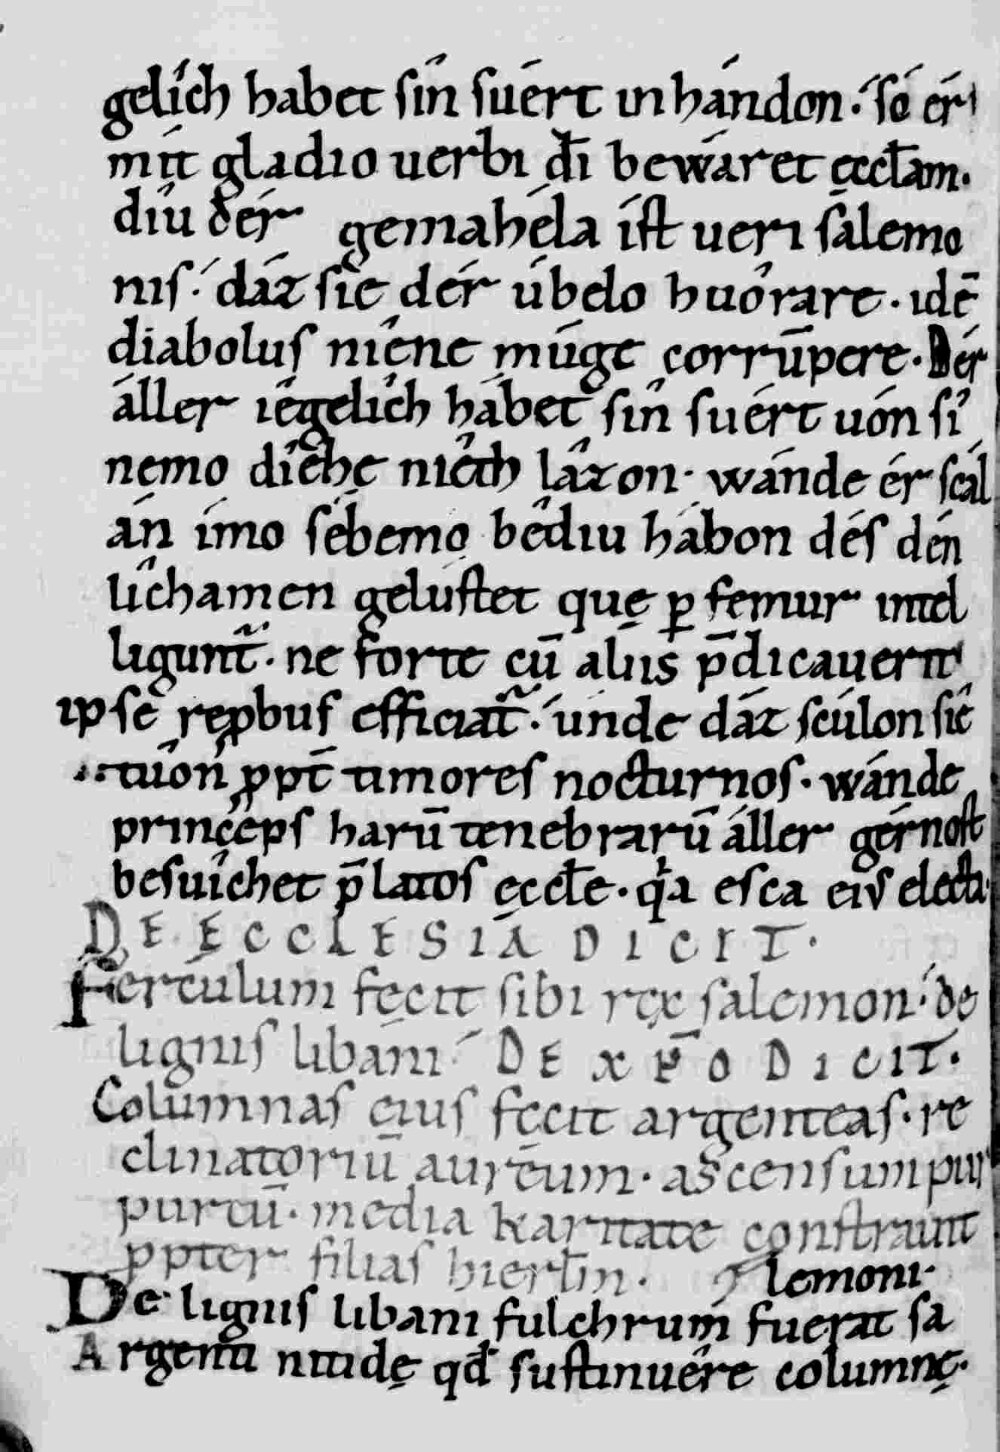 gelích habet sîn suért in hándon. só ér
mít gladio uerbi dī bewáret ęccłam.
díu dér gemahéla íst ueri salemo
nis. dáz síe dér úbelo huórare. idē
diabolus niéne múge corrūpere. Dér
áller iégelích hábet sîn suért uón sí
nemo díehe niéth lázon. wánde ér scál
án ímo sébemo bédiu hábon dés dén
lîchamen gelústet quę ꝑ femur intel
ligunt᷑. ne forte cū aliis p̄dicauerit
ipse reꝓbus efficiat᷑. únde dáz scúlon síe
tuôn ꝓpt̄ timores nocturnos. wánde
princeps harū tenebrarū áller gérnost
besuíchet p̄latos ęccłe. qͥa esca eius electa.
DE ECCLESIA DICIT.
Ferculum fecit sibi rex salemon. de
lignis libani. DE XP̄O DICIT.
Columnas eius fecit argenteas. re
clinatoriū aureum. ascensum pur
pureū. media karitate constrauit
ꝓpter filias hierłm. lemoni.
De lignis libani fulchrum fuerat sa
Argenti nitidę qđ sustinuêre columnę.